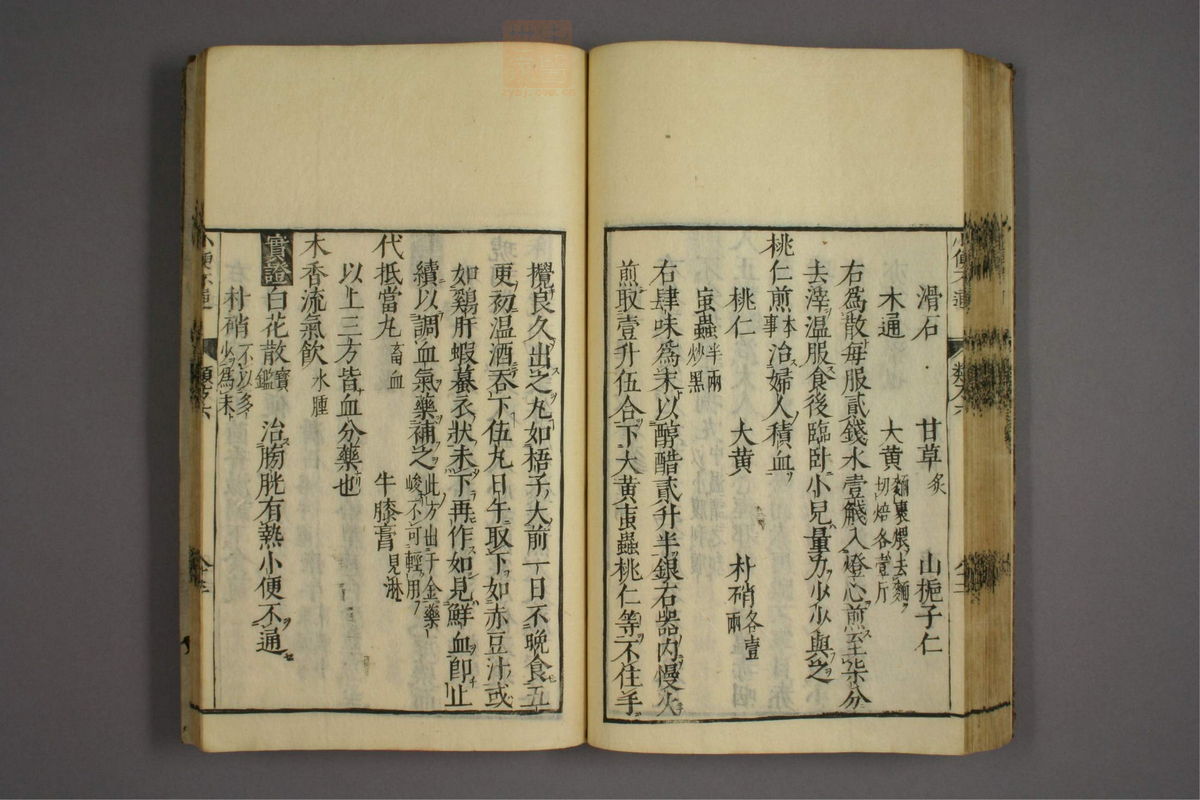 滑石　甘草炙　山梔子仁
木通　大黄麵裹煨去麵切焙各壹斤
右爲散每服貳錢水壹盞入燈心煎至柒分
去滓温服食後臨卧小兒量力少少與之
桃仁煎本事治婦人積血
桃仁　大黄　朴硝各壹兩
䖟蟲半兩炒黑
右肆味爲末以醇醋貳升半銀石器內慢火
煎取壹升伍合下大黄䖟蟲桃仁等不住手
攪良久出之丸如梧子大前一日不晚食五
更初温酒吞下伍丸日午取下如赤豆汁或
如鷄肝蝦蟇衣狀未下再作如見鮮血卽止
續以調血氣藥補之此方出于金藥峻不可輕用
代抵當丸畜血　牛膝膏見淋
以上三方皆血分藥也
木香流氣飲水腫
實證白花散寶鑑治膀胱有熱小便不通
朴硝不以多少爲末
小便不通